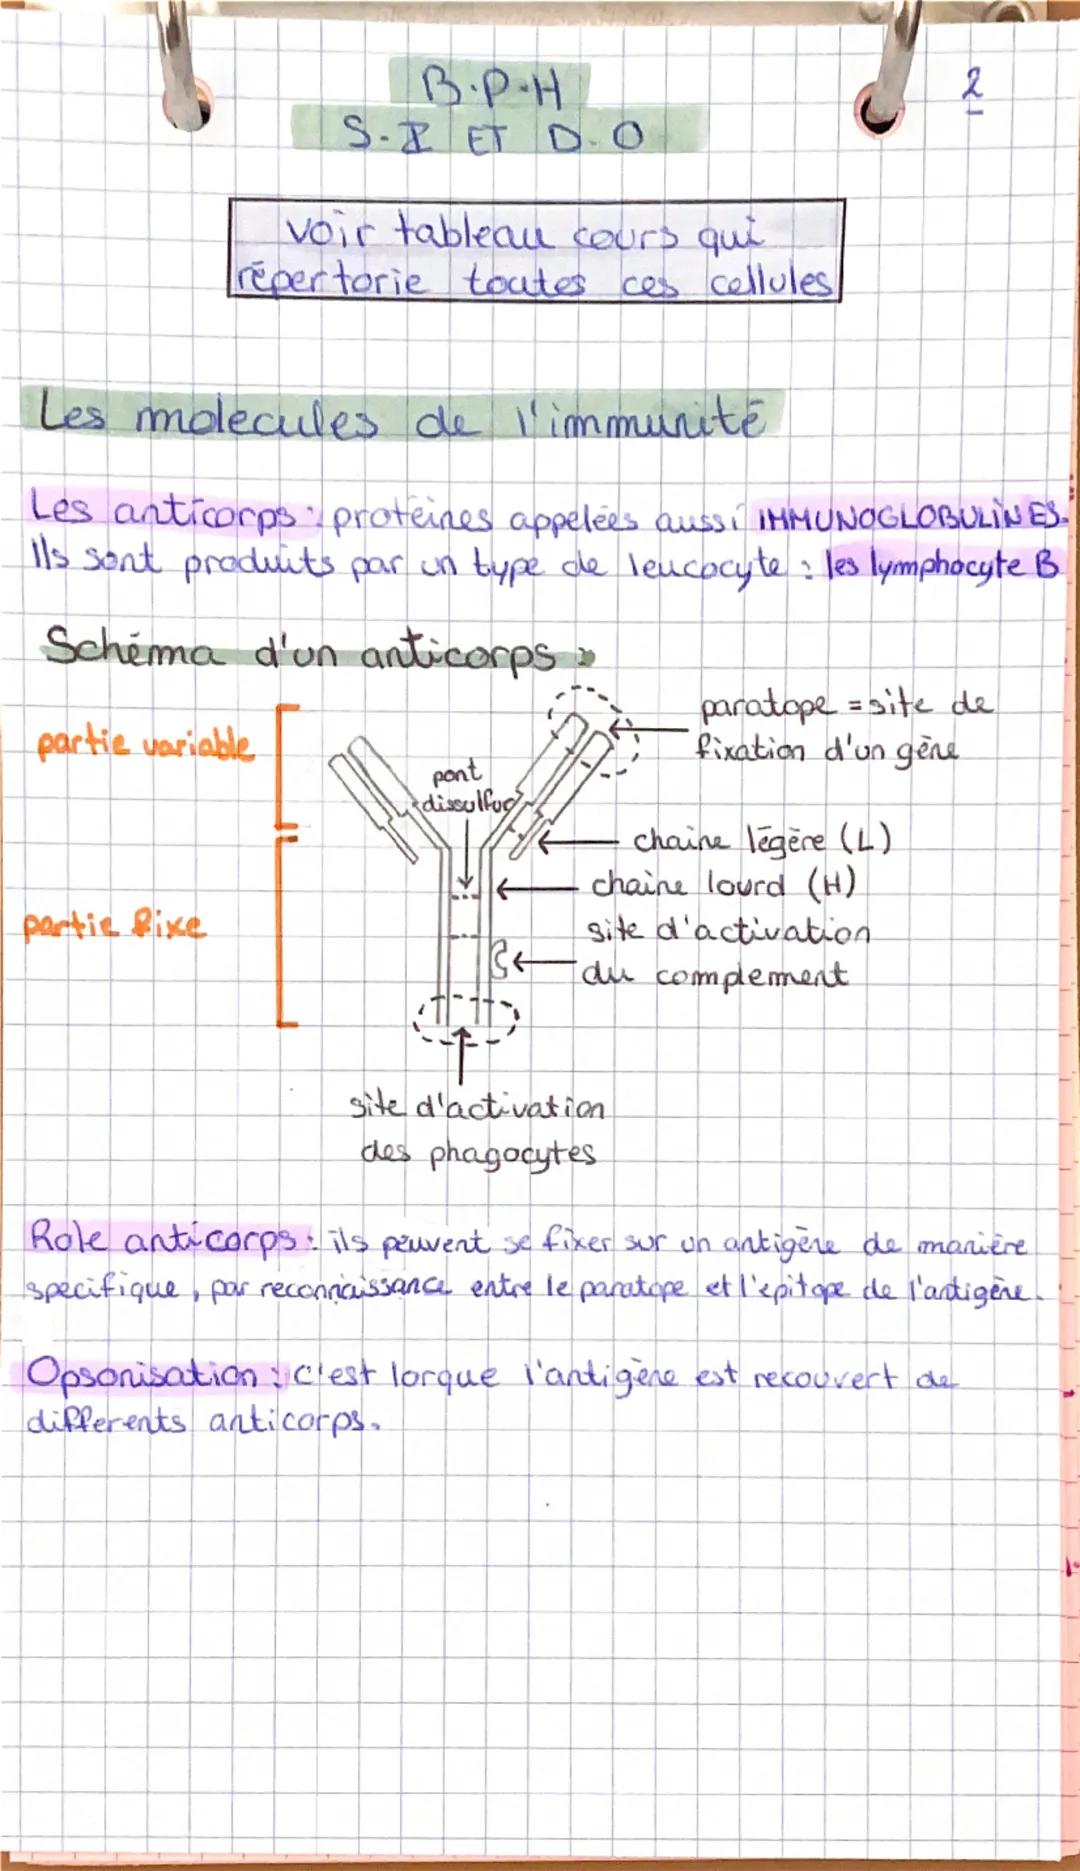 B.P.H
2
S.I ET D.O
voir tableau cours qui
répertorie toutes ces cellules
Les molecules de l'immunité
Les anticorps : protéines appelées aussi IMMUNOGLOBULINES.
Ils sont produits par un type de leucocyte : les lymphocyte B
Schéma d'un anticorps :
partie variable
paratope = site de
fixation d'un gène
pont
dissulfuc
chaine légère (L)
chaine lourd (H)
partie fixe
site d'activation
du complement
site d'activation
des phagocytes
Role anticorps : ils peuvent se fixer sur un antigène de manière
specifique, par reconnaissance entre le paratope et l'épitope de l'antigène.
Opsonisation : c'est lorque l'antigène est recouvert de
differents anticorps.